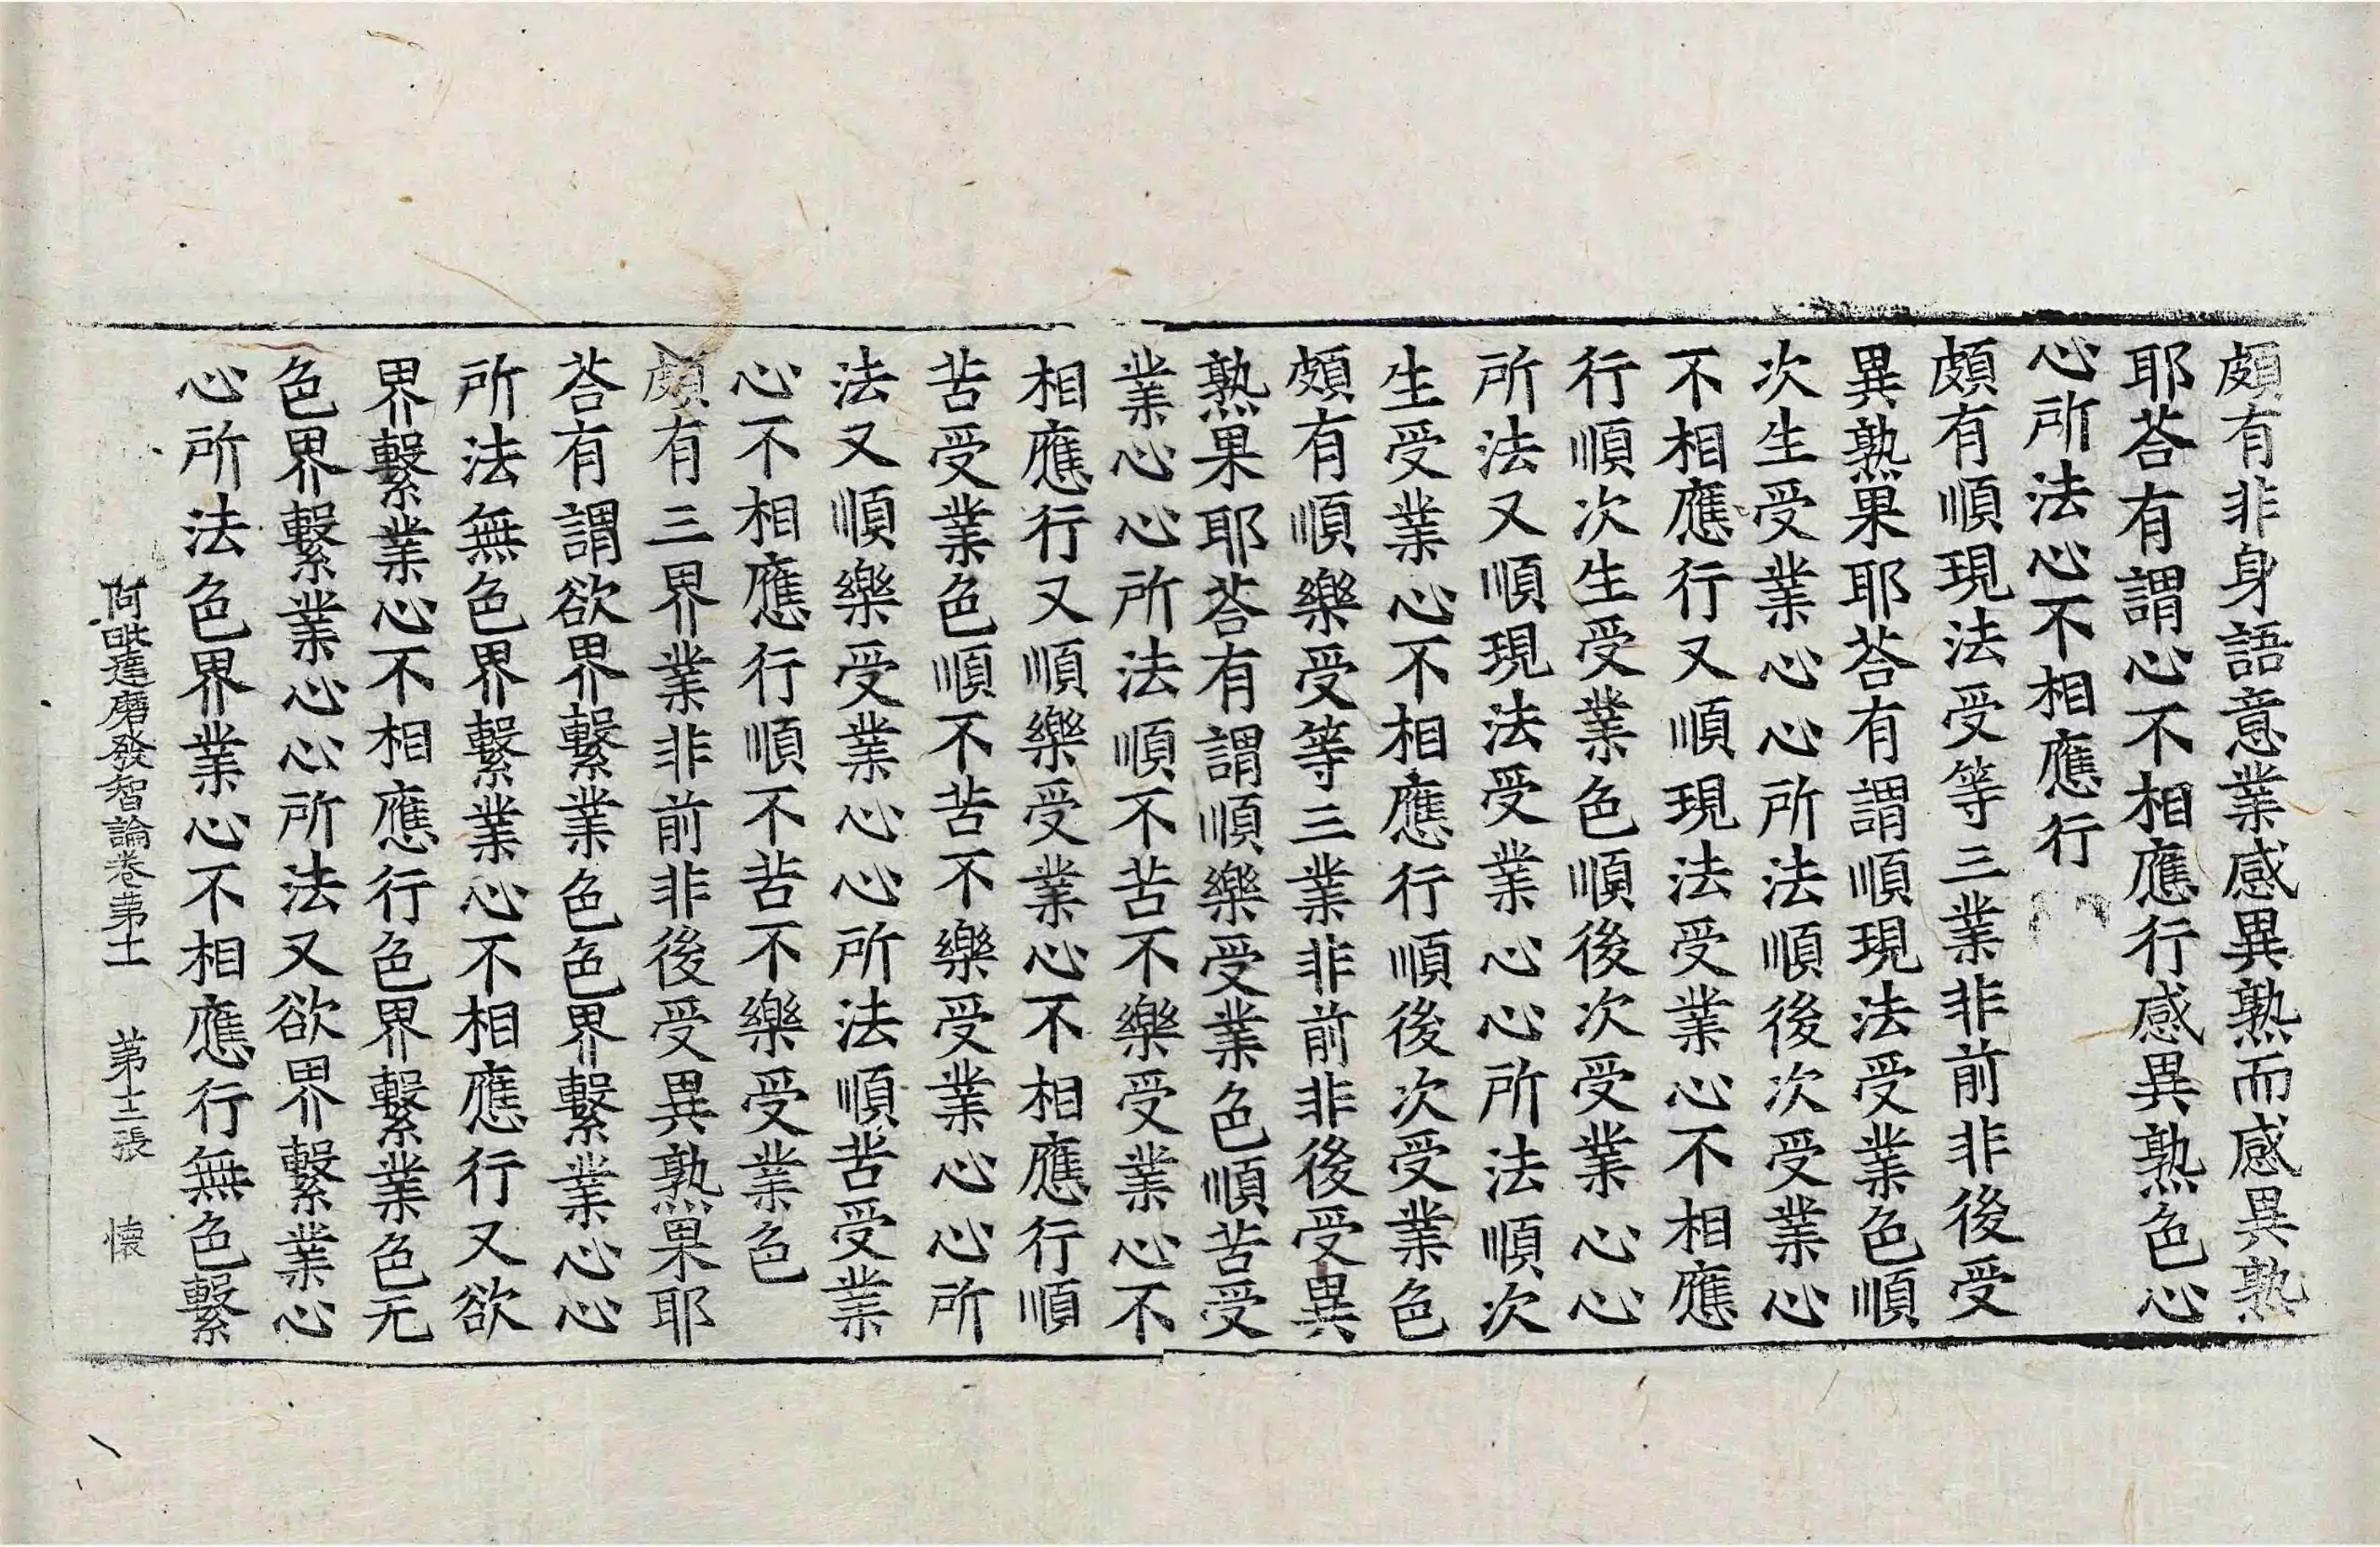 頗有非身語意業感異熟而感異熟
耶荅有謂心不相應行感異熟色心
心所法心不相應行
頗有順現法受等三業非前非後受
異熟果耶荅有謂順現法受業色順
次生受業心心所法順後次受業心
不相應行又順現法受業心不相應
行順次生受業色順後次受業心心
所法又順現法受業心心所法順次
生受業心不相應行順後次受業色
頗有順樂受等三業非前非後受異
熟果耶荅有謂順樂受業色順苦受
業心心所法順不苦不樂受業心不
相應行又順樂受業心不相應行順
苦受業色順不苦不樂受業心心所
法又順樂受業心心所法順苦受業
心不相應行順不苦不樂受業色
頗有三界業非前非後受異熟果耶
荅有謂欲界繫業色色界繫業心心
所法無色界繫業心不相應行又欲
界繫業心不相應行色界繫業色无
色界繫業心心所法又欲界繫業心
心所法色界業心不相應行無色繫
阿毗達磨發智論卷苐十一 苐十二張 懷